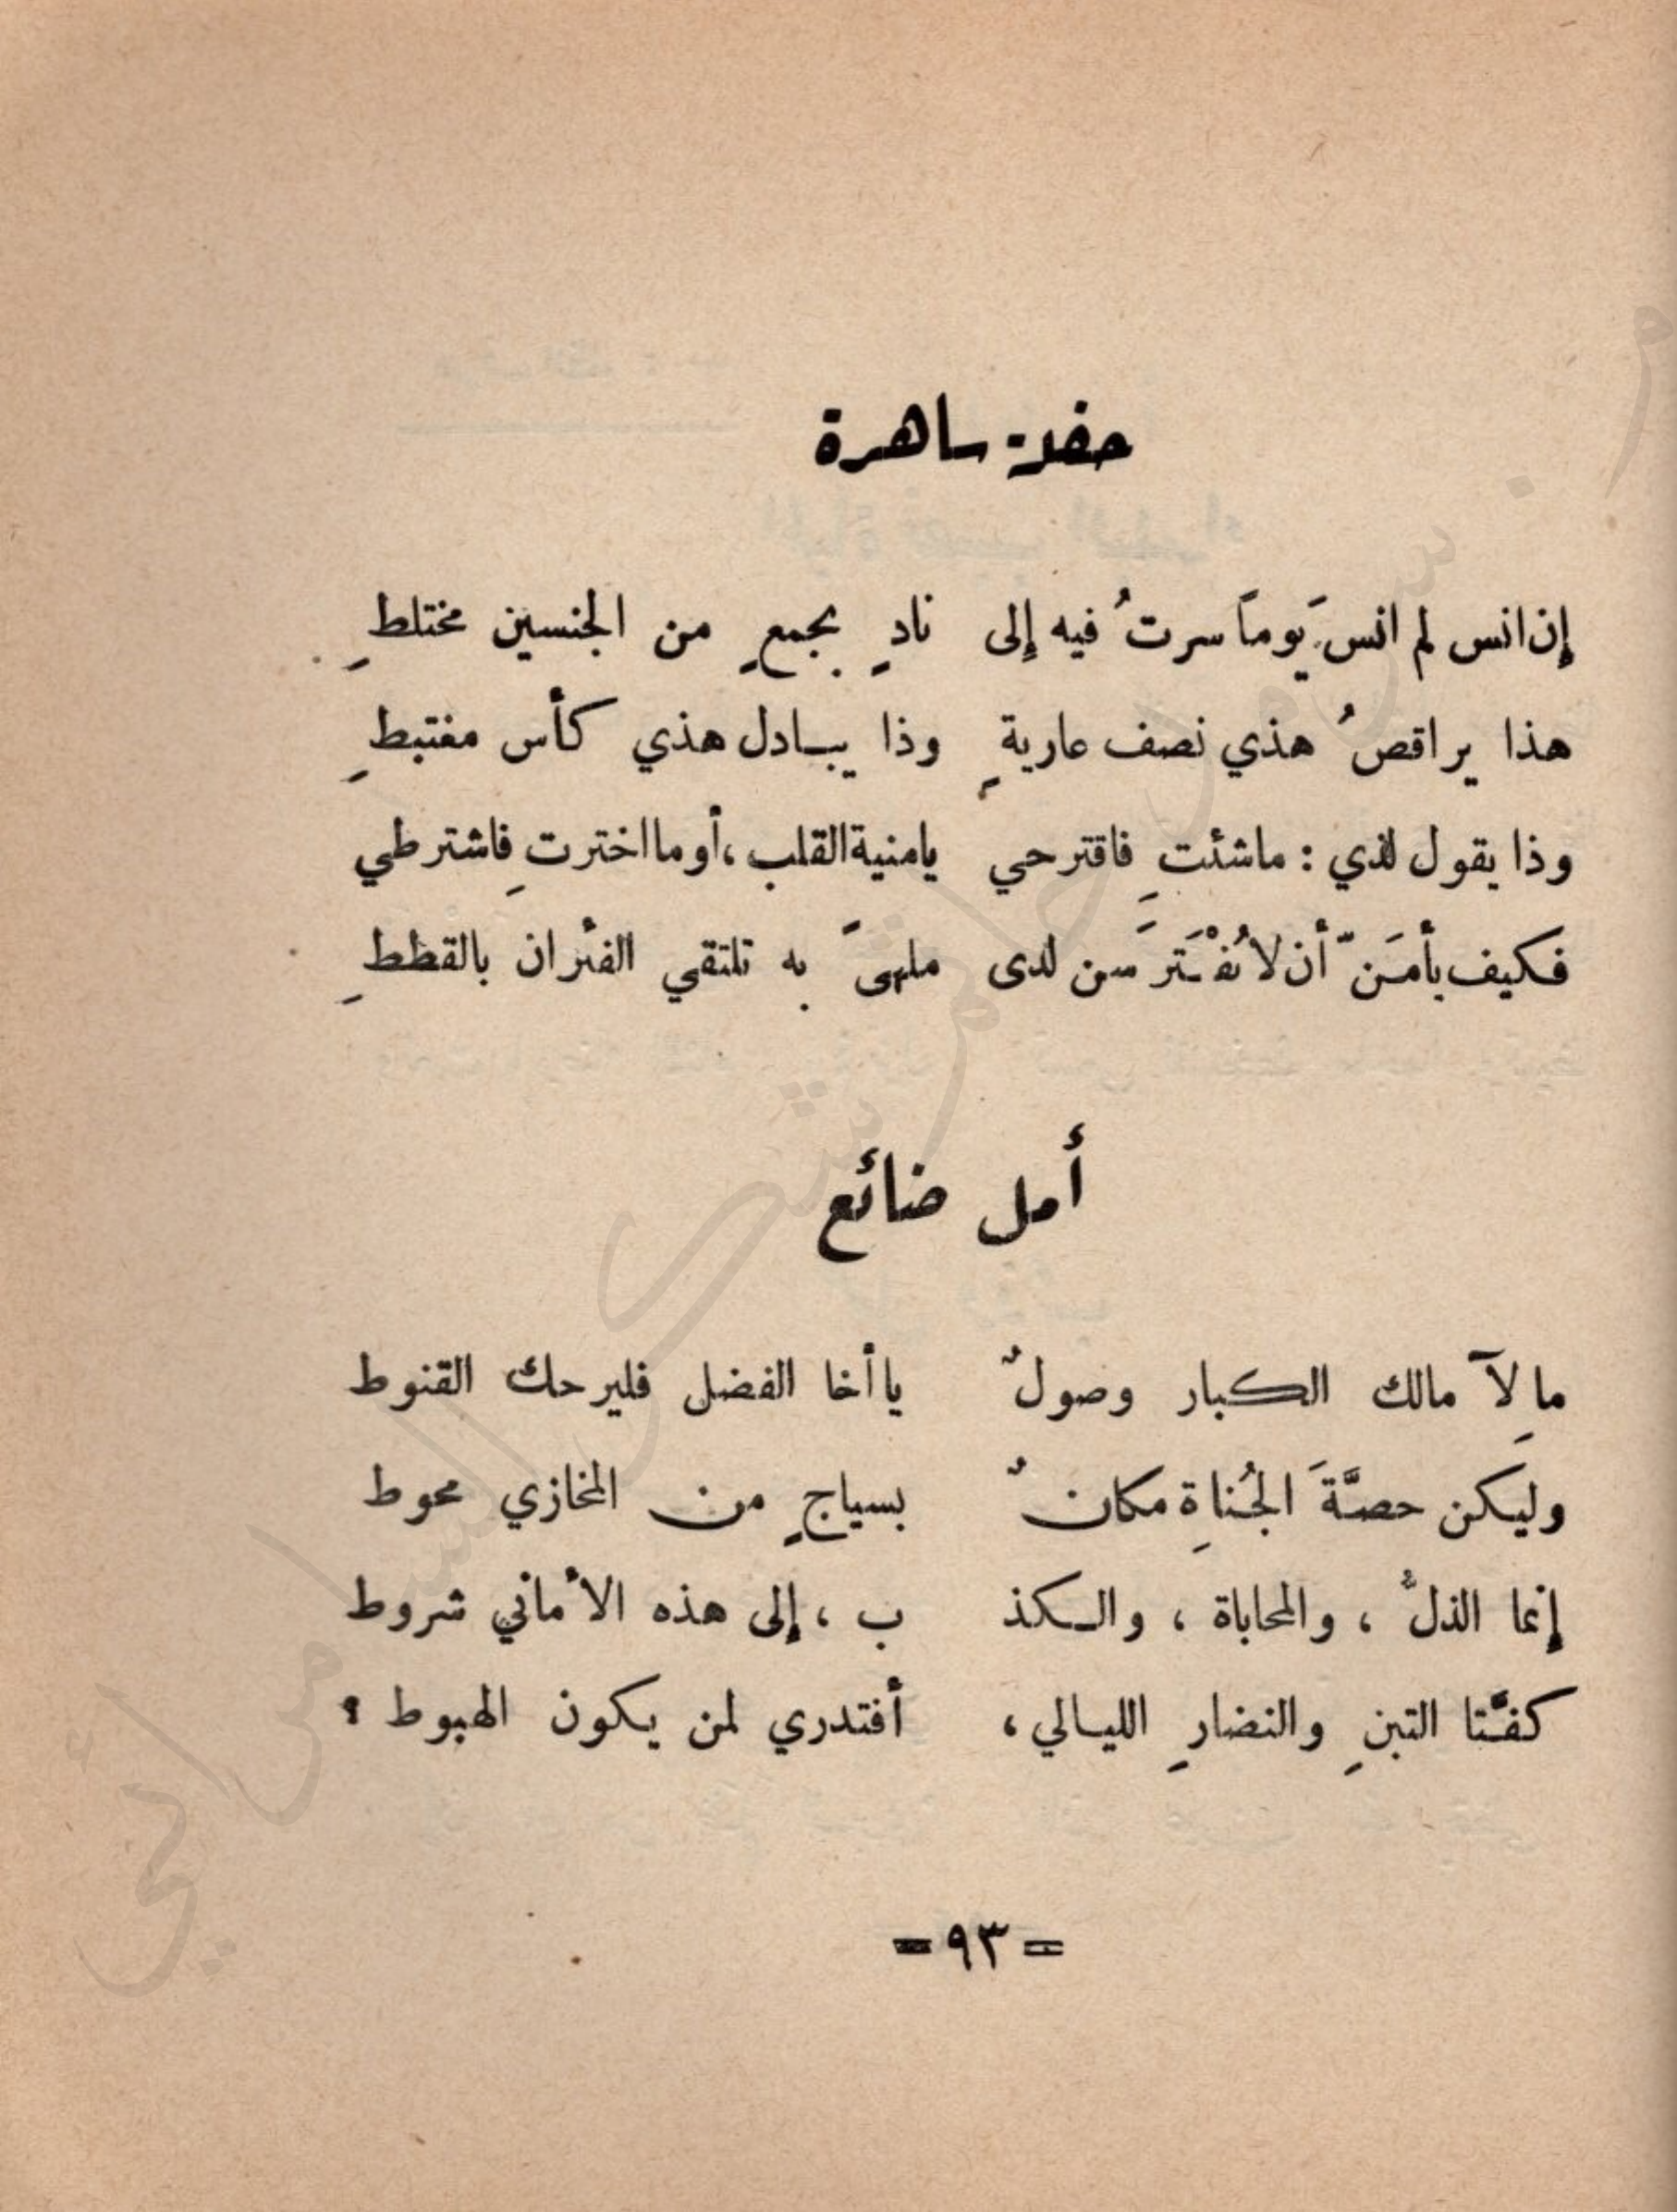 حفلة ساهرة
إن انس لم انسَ يوماً سرتُ فيه إلى نادٍ بجمعٍ من الجنسين مختلطِ
هذا يراقصُ هذي نصف عاريةٍ وذا يبادل هذي كأس مغتبطِ
وذا يقول لذي : ماشئتِ فاقترحي يامنية القلب ، أو ما اخترتِ فاشترطي
فكيف يأمَنّ أن لا تُفْتَرَسن لدى ملهىً به تلتقي الفئران بالقططِ
أمل ضائع
ما لِآمالك الكبار وصولٌ يا أخا الفضل فليرحك القنوط
وليكن حصَّةَ الجُناةِ مكانٌ بسياجٍ من المخازي محوط
إنما الذلُّ ، والمحاباة ، والكذ ب ، إلى هذه الأماني شروط
كفَّتا التبنِ والنضارِ الليالي ، أفتدري لمن يكون الهبوط ؟
= ٩٣ =